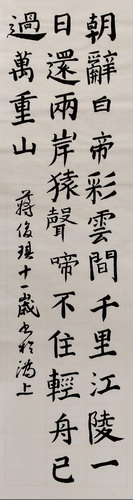 朝辭白帝彩雲間千里江陵一
日還兩岸猿聲啼不住輕舟已
過萬重山
蔣俊琪十一歲書於滬上